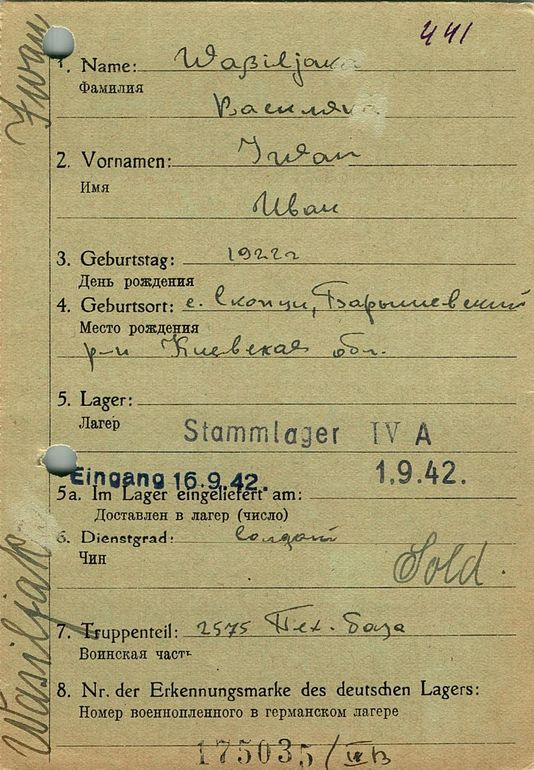 441
1. Name: Waßiljaka
Фамилия
Василяка
2. Vornamen: Iwan
Имя
Иван
3. Geburtstag: 1922г
День рождения
4. Geburtsort: с. Скопци, Барышевский
Место рождения
р-н Киевская обл.
5. Lager:
Лагер
Stammlager IV A
Eingang 16.9.42. 1.9.42.
5a. Im Lager eingeliefert am:
Доставлен в лагер (число)
6. Dienstgrad: Солдат
Чин
Sold.
7. Truppenteil: 2575 Тех. база
Воинская часть
8. Nr. der Erkennungsmarke des deutschen Lagers:
Номер военнопленного в германском лагере
175035/IV B
Wasiljak
Iwan